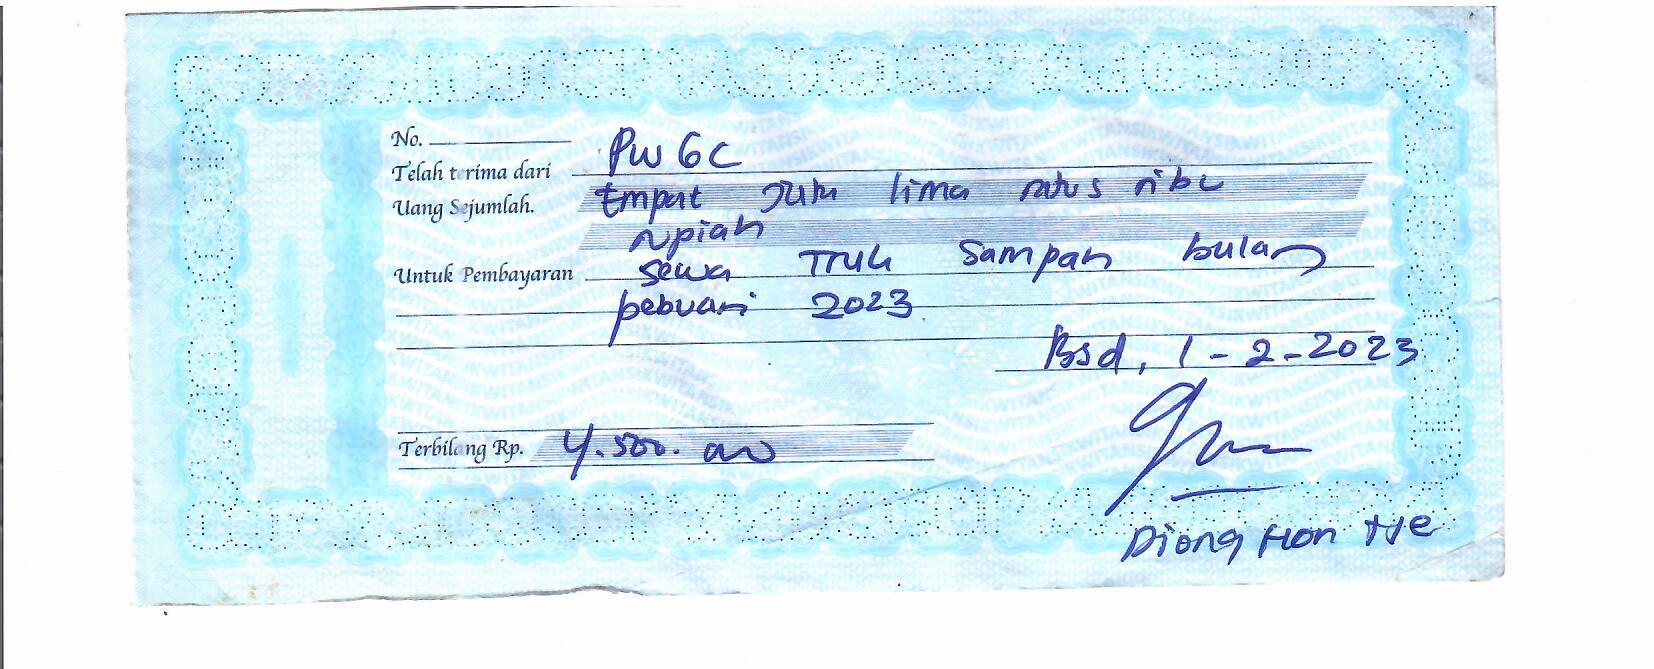 No.
Telah terima dari PWGC
Uang Sejumlah. Empat Juta lima ratus ribu
rupiah
Untuk Pembayaran sewa Truk Sampah bulan
pebuari 2023
Bsd, 1-2-2023
Terbilang Rp. 4.500.000
Diong Hon Tje